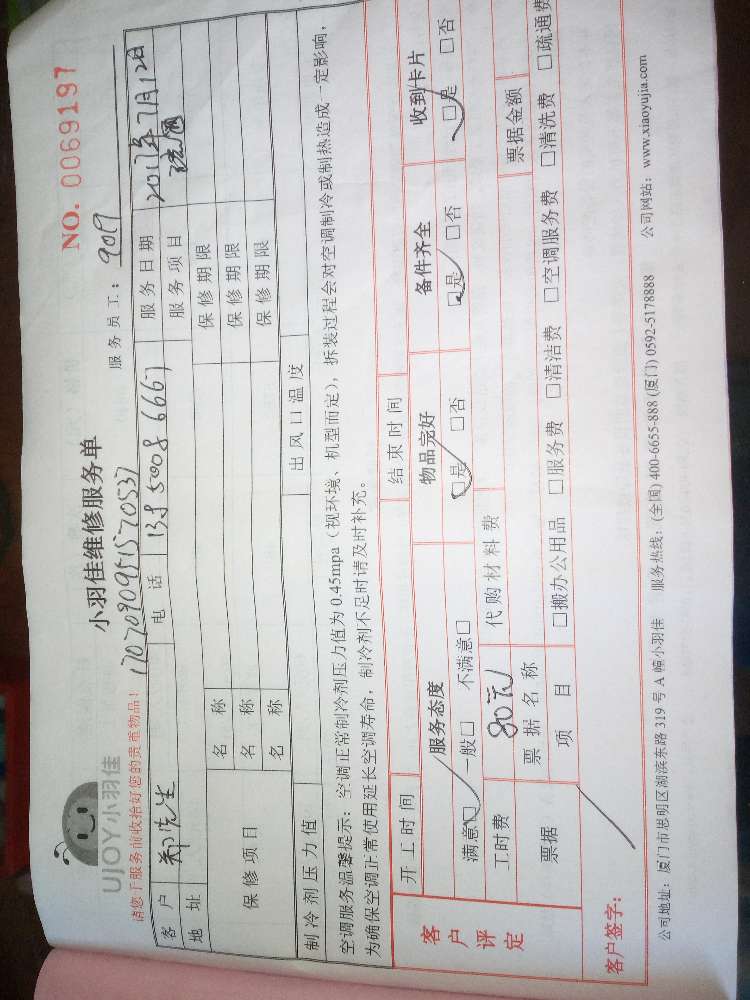 UJOY小羽佳
小羽佳维修服务单
NO. 0069197
请您于服务前收拾好您的贵重物品!
1707090951570537
服务员工: 9019
客户 郑先生 电话 13850086667 服务日期 2017年7月12日
地址 服务项目
保修项目 名称 保修期限
名称 保修期限
名称 保修期限
制冷剂压力值 出风口温度
空调服务温馨提示: 空调正常制冷剂压力值为 0.45mpa (视环境、机型而定), 拆装过程会对空调制冷或制热造成一定影响,
为确保空调正常使用延长空调寿命, 制冷剂不足时请及时补充。
客户评定 开工时间 结束时间
服务态度 物品完好 备件齐全 收到卡片
满意□ 一般□ 不满意□ □是 □否 □是 □否 □是 □否
工时费 80元 代购材料费
票据 票据名称 票据金额
项目 □搬办公用品 □服务费 □清洁费 □空调服务费 □清洗费 □疏通费
客户签字:
公司地址: 厦门市思明区湖滨东路 319 号 A 幢小羽佳 服务热线: (全国) 400-6655-888 (厦门) 0592-5178888 公司网站: www.xiaoyujia.com